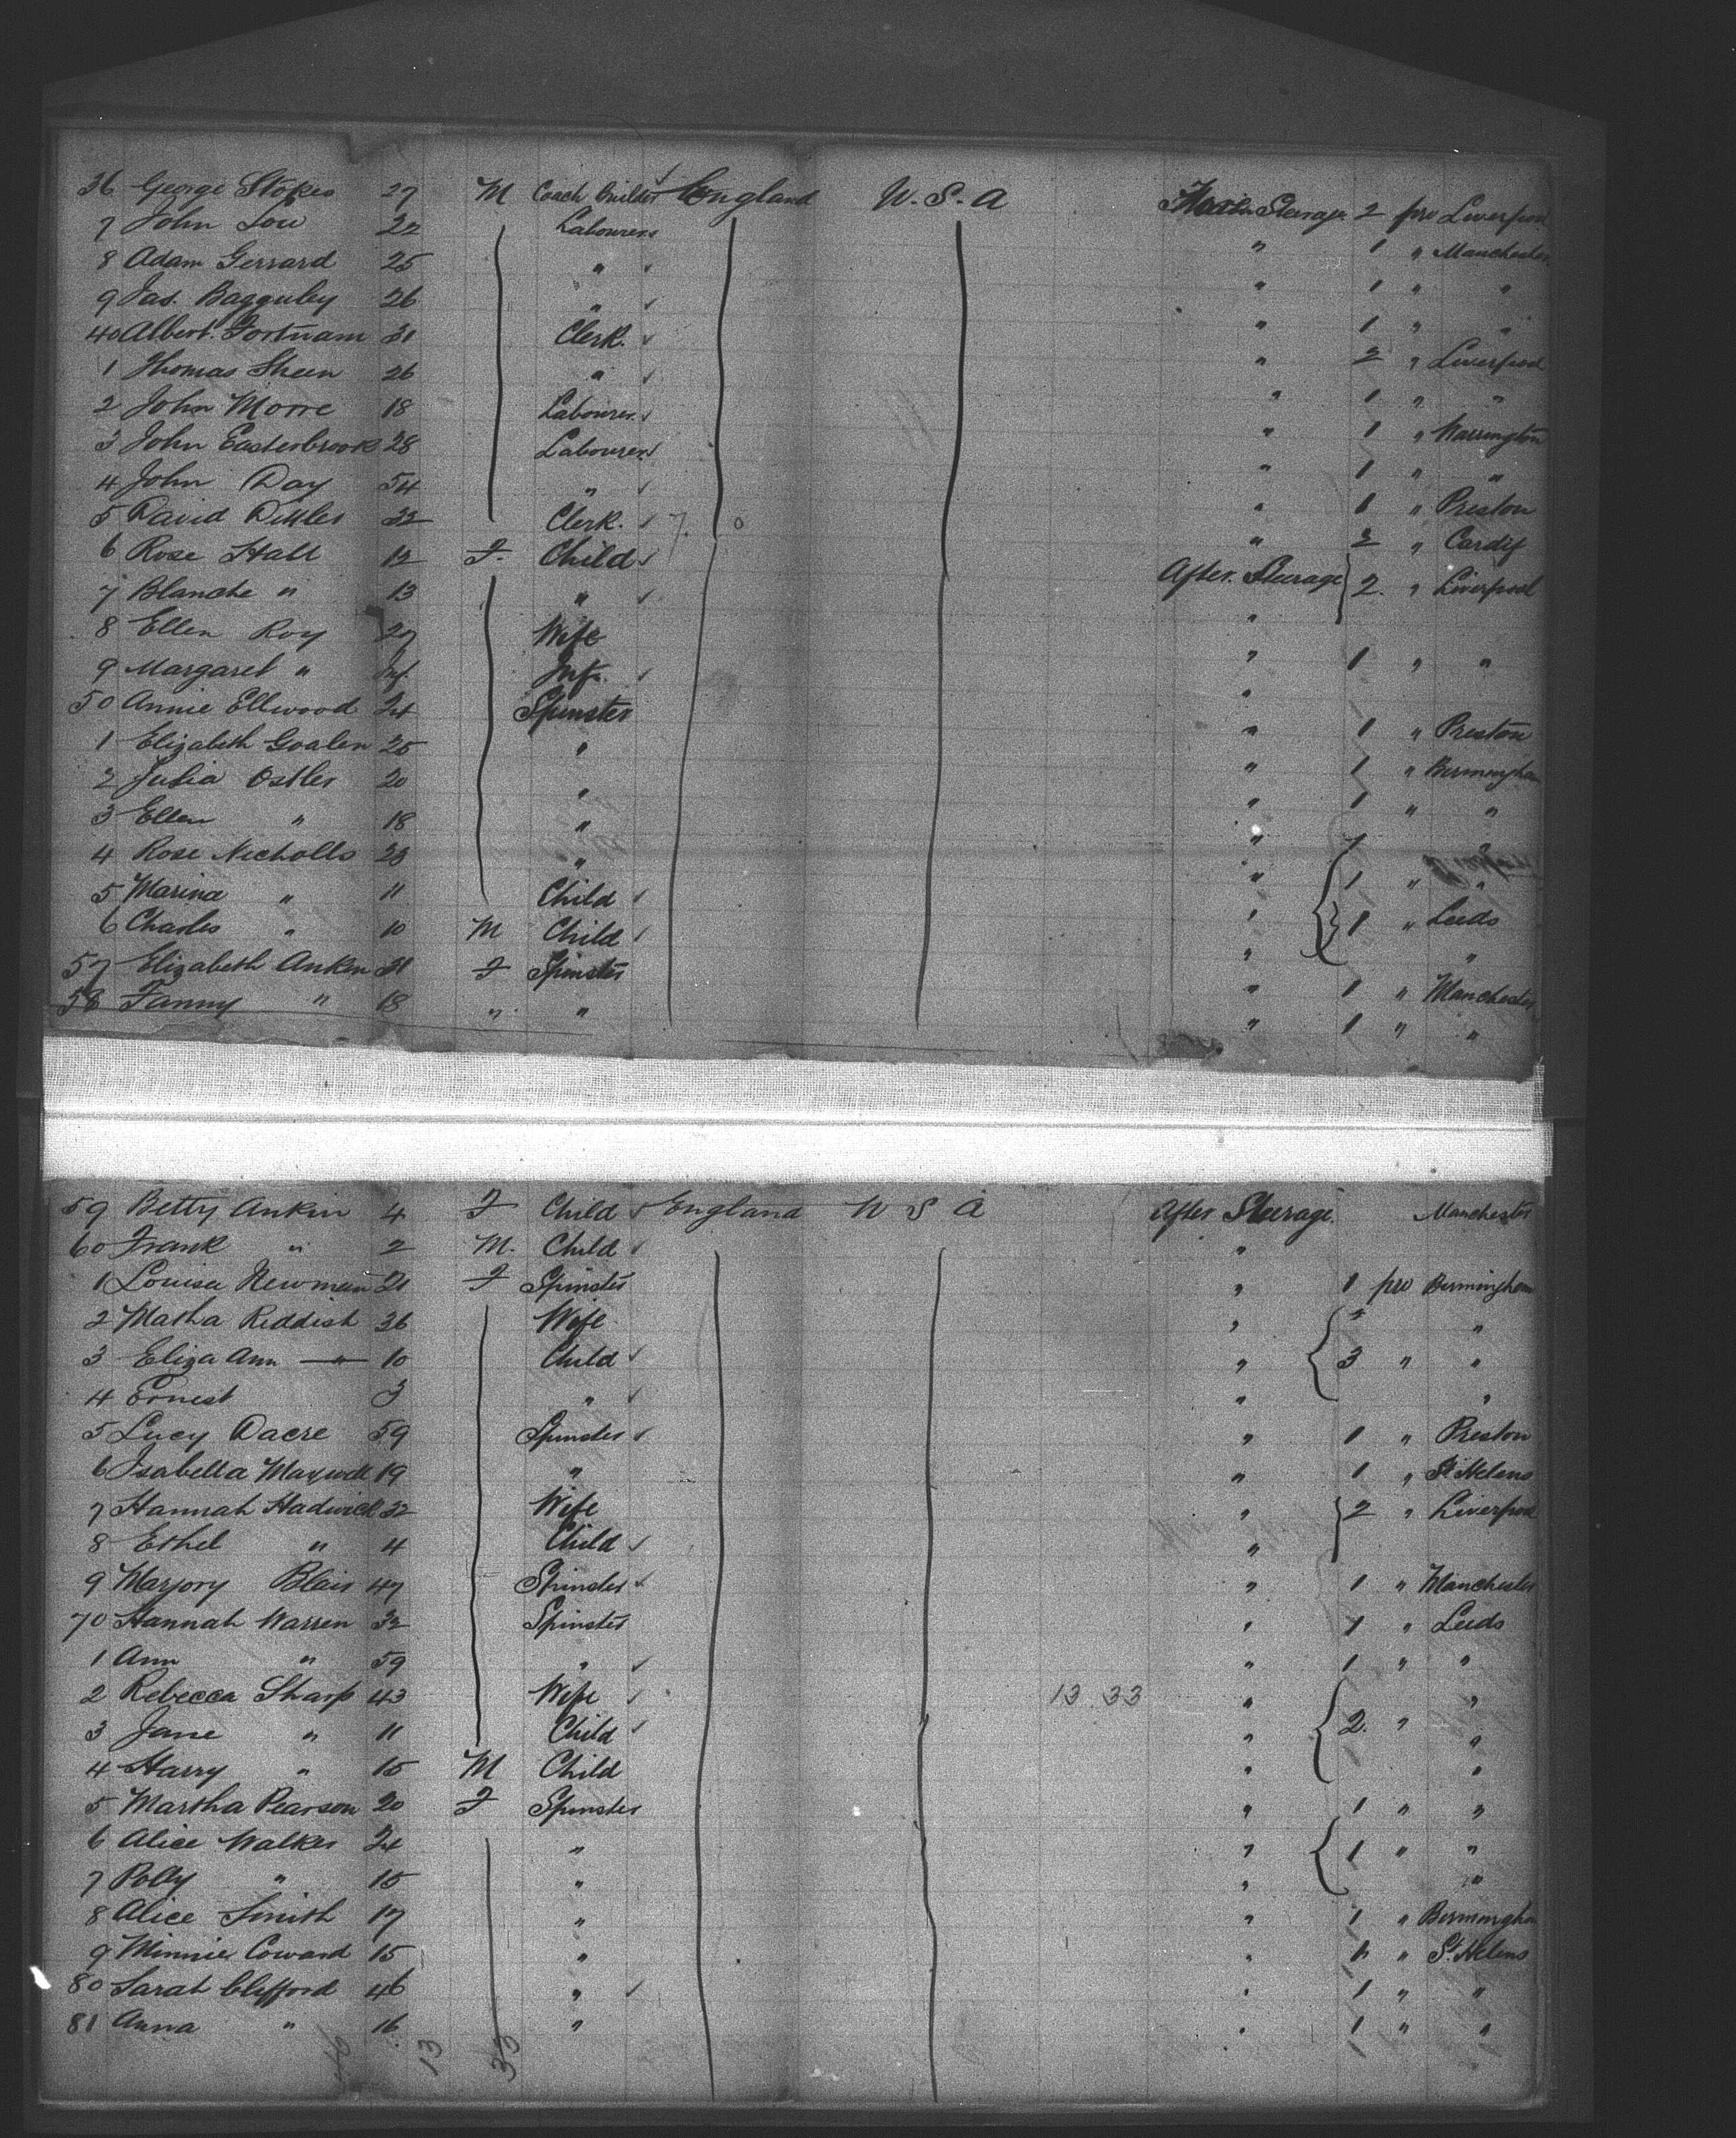 36 George Stokes 27 M Coach Builder England U.S.A Steerage 2 pro Liverpool
7 John Low 22 Labourer " 1 " Manchester
8 Adam Gerrard 25 " " 1 " "
9 Jas. Bagguley 26 " " 1 " "
40 Albert Fortnam 31 Clerk. " 2 " Liverpool
1 Thomas Sheen 26 " " 1 " "
2 John Morre 18 Labourer " 1 " Warrington
3 John Easterbrook 28 Labourer " 1 " "
4 John Day 54 " " 1 " Preston
5 David 32 Clerk. 7. 0 " 2 " Cardif
6 Rose Hall 12 F. Child After Steerage 2. " Liverpool
7 Blanche " 13 " "
8 Ellen Roy 27 Wife " 1 " "
9 Margaret " Inf. Inf. "
50 Annie Ellwood 24 Spinster " 1 " Preston
1 Elizabeth Goalen 25 " " 1 " Birmingham
2 Julia Ostler 20 " " 1 " "
3 Ellen " 18 " "
4 Rose Nicholls 28 " " 1 " "
5 Marina " 11 Child " 1 " Leeds
6 Charles " 10 M Child " "
57 Elizabeth Ankin 31 F Spinster " 1 " Manchester
58 Fanny " 18 " " " 1 " "
59 Betty Ankin 4 F Child England U S A After Steerage. Manchester
60 Frank " 2 M. Child "
1 Louisa Newman 21 F Spinster " 1 pro Birmingham
2 Matha Reddish 36 Wife " "
3 Eliza Ann " 10 Child " 3 " "
4 Ernest 3 " " "
5 Lucy Dacre 59 Spinster " 1 " Preston
6 Isabella Maxwell 19 " " 1 " St Helens
7 Hannah Hadwick 32 Wife " 2 " Liverpool
8 Ethel " 4 Child "
9 Marjory Blair 47 Spinster " 1 " Manchester
70 Hannah Warren 32 Spinster " 1 " Leeds
1 Ann " 59 " " 1 " "
2 Rebecca Sharp 43 Wife 13 33 " "
3 Jane " 11 Child " 2. " "
4 Harry " 15 M Child " "
5 Martha Pearson 20 F Spinster " 1 " "
6 Alice Walker 24 " " 1 " "
7 Polly " 15 " " "
8 Alice Smith 17 " " 1 " Birmingham
9 Minnie Coward 15 " " " St Helens
80 Sarah Clifford 46 " " 1 " "
81 Anna " 16 " " 1 " "
13 33